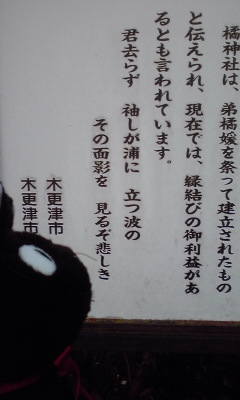 橘神社は、弟橘媛を祭って建立されたもの
と伝えられ、現在では、縁結びの御利益があ
るとも言われています。
君去らず 袖しが浦に 立つ波の
その面影を 見るぞ悲しき
木更津市
木更津市